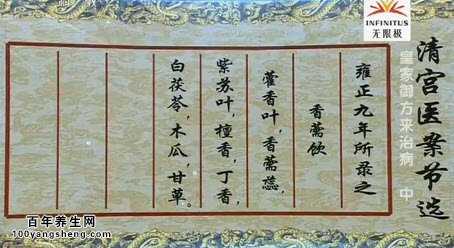 INFINITUS
无限极
清宫医案节选
皇家御方来治病 中
雍正九年所录之
香薷饮
藿香叶，香薷蕊，
紫苏叶，檀香，丁香，
白茯苓，木瓜，甘草。
百年养生网
100yangsheng.com